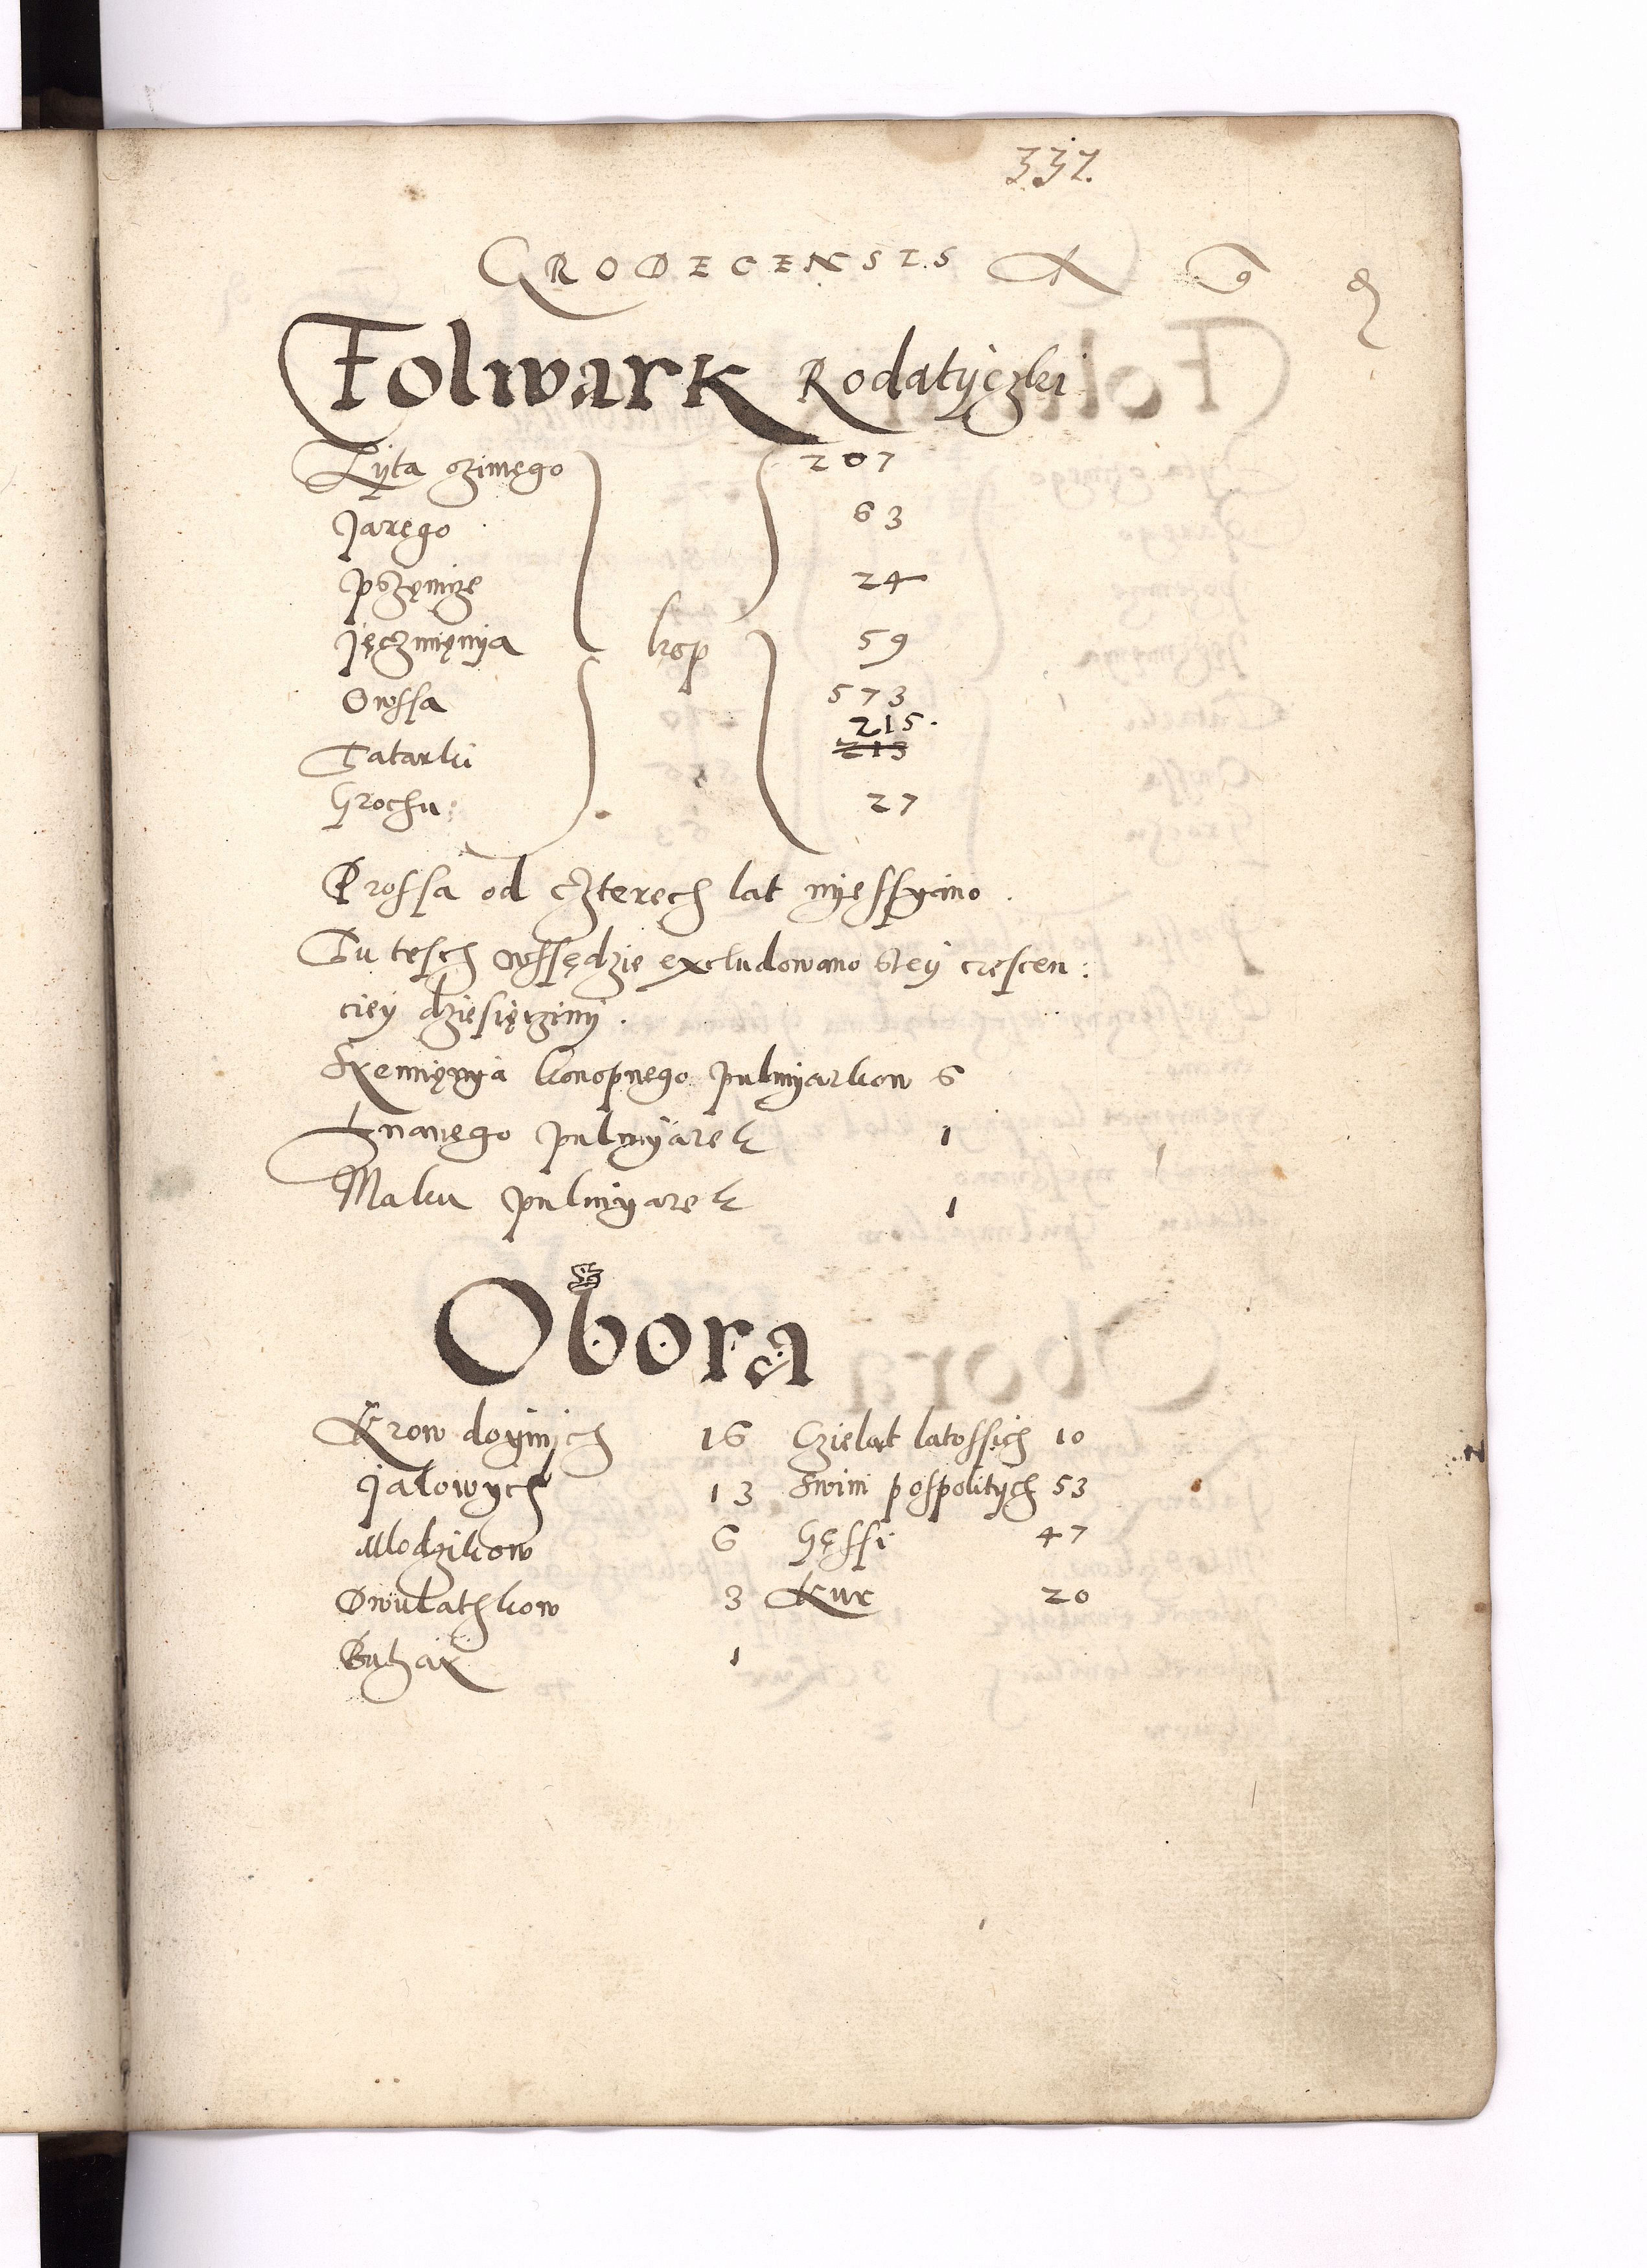 337.
GRODECENSIS
Folwark Rodatyczki
Zyta ozimego 207
Jarego 63
pszenice 24
Jęczmięnya kop 59
Owssa 573
215.
Tatarki 213
Grochu 27
Prossa od czterech lat nyessyano.
Tu tesch wssędzie excludowano stey crescen:
ciey dziesięcziny.
Szemięnya konopnego pulmyarkow 6
Lnanego pulmyarek 1
Maku pulmyarek 1
Obora
Krow doynych 16 Czieląt latossich 10
Jałowych 13 Swini pospolitych 53
Młodzikow 6 Gęssi 47
Dwulathkow 3 Kur 20
Buhak 1